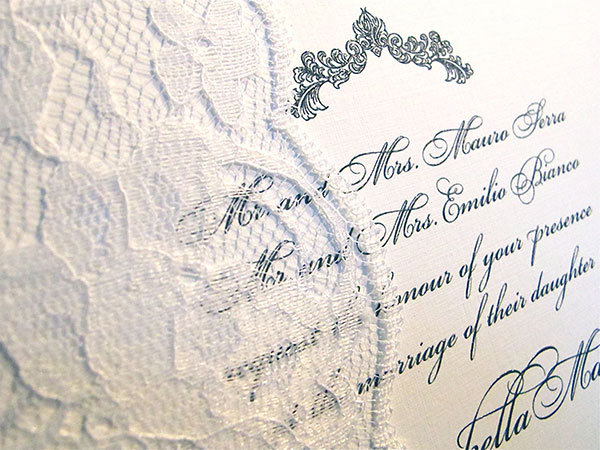 Mr. and Mrs. Mauro Serra
Mr. and Mrs. Emilio Bianco
request the honour of your presence
marriage of their daughter